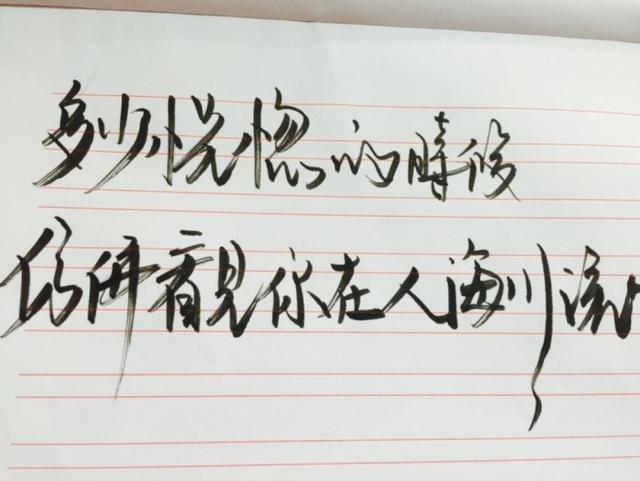 多少恍惚的時候
仿佛看見你在人海川流